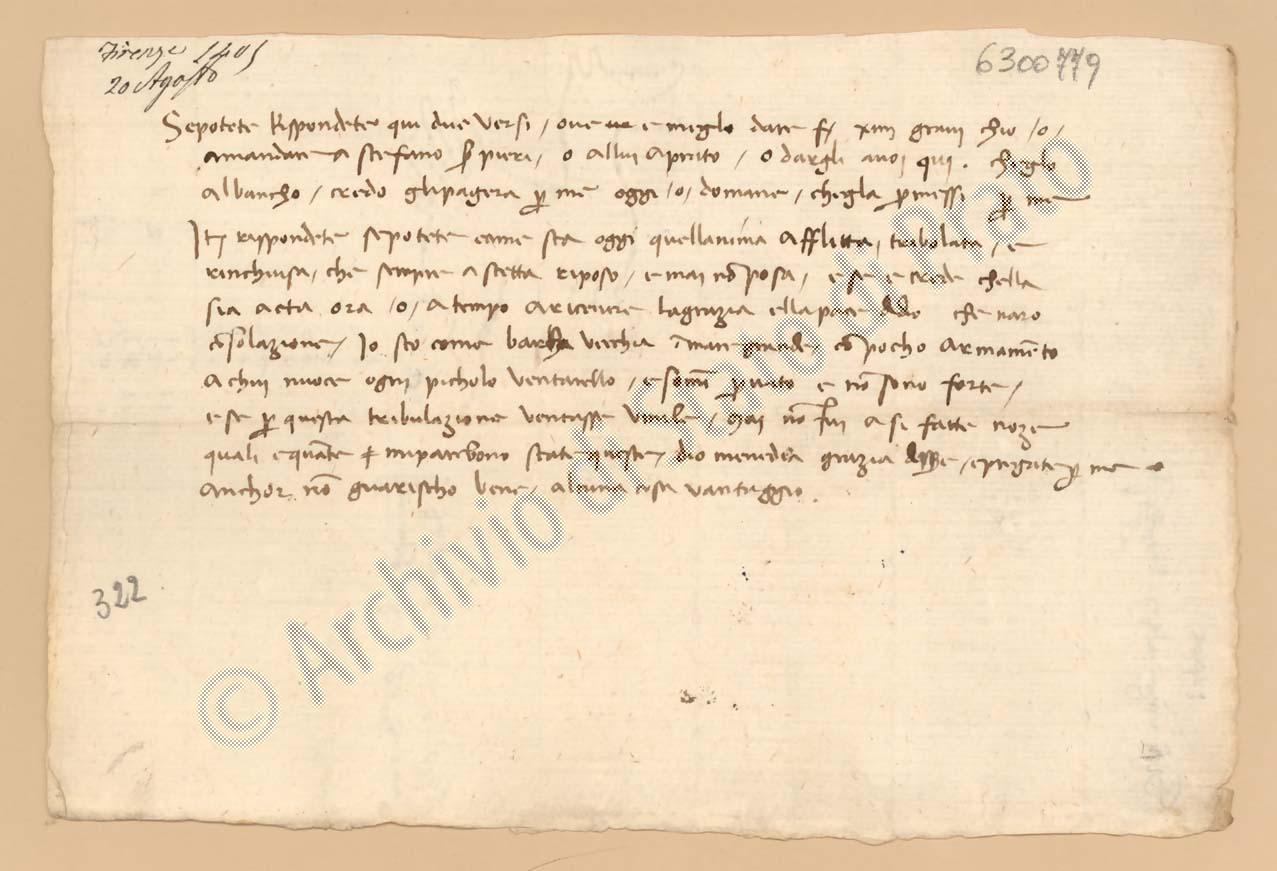 Firenze 1401
20 Agosto
6300779
Sepotete Rispondete qui due versi / ove e meglo dare f. xiiii gravi chio /o/
amandare a stefano s pieri / o allui aprato / o dargli a voi qui . cheglo
albancho / credo glipagera p me oggi /o/ domane / chegla pmessi p me
It rispondete sepotete come sta oggi quellanima afflitta / tribolata / e
rinchiusa / che sempre aspetta riposo / e mai nō posa / e se e crede chella
sia acta ora /o/ a tempo aricevere lagrazia ellapace che
cōsolazione / Io sto como barcha vecchia ī mare grande cō pocho armamēto
achui nuoce ogni picholo ventarello / e somi pvato e nō sono forte /
e se p questa tribulazione ventasse / mai nō fui a si fatte noze
quali e quante mi parebono state queste / dio menedea grazia / e pregate p me
anchor nō guarischo bene / alcuna cosa vantaggio .
322
© Archivio di Stato di Prato